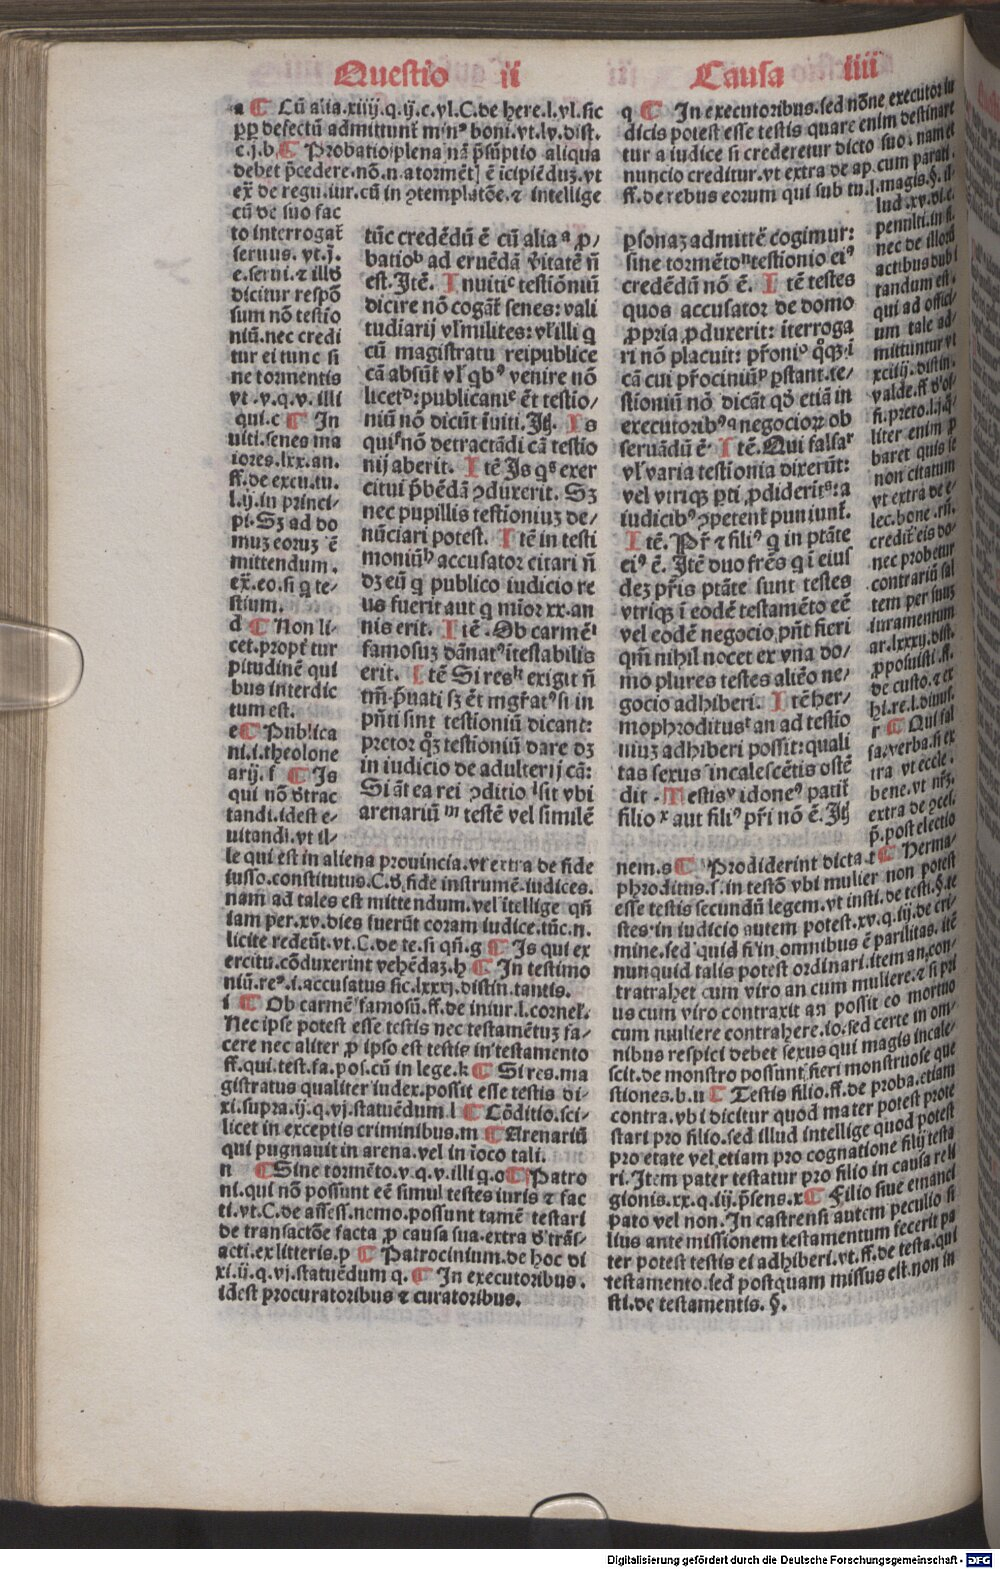 Questio ii Causa iiii
a ¶ Cū alia.xiiij.q.ij.c.vl.C.de here.l.vl.sic
pp defectū admittunt̄ mīn⁹ boni.vt.lv.dist.
c.j.b ¶ Probatio plena nā p̄sūptio aliqua
debet p̄cedere.nō.n.a tormēt] ē īcipiēduꝫ.vt
ex̄ de regu.iur.cū in ꝯtemplatōe.⁊ intellige
cū de suo fac
to interrogat̄
seruus. vt.j.
e.serui.⁊ illō
dicitur respō
sum nō testio
niū.nec credi
tur ei tunc si
ne tormentis
vt .v.q.v. illi
qui.c ¶ In
uiti.senes ma
iores.lxx.an.
ff.de excu.tu.
l.ij.in princi-
pi. Sꝫ ad do
muꝫ eoruꝫ ē
mittendum.
ex̄.eo.si q̄ te-
stium.
d ¶ Non li-
cet.propt̄ tur
pitudinē qui
bus interdic
tum est.
e ¶ Publica
ni.i.theolone
arij. f ¶ Is
qui nō ōtrac
tandi.idest e-
uitandi.vt il-
le qui est in aliena prouincia.vt extra de fide
iusso.constitutus.C.ō.fide instrumē.iudices.
nam ad tales est mittendum.vel ītellige qn̄
iam per.xv.dies fuerūt coram iudice.tūc.n.
licite redeūt.vt.C.de te.si qn̄.g ¶ Is qui ex
ercitu.cōduxerint vehēdaꝫ.h ¶ In testimo
niū.re⁹.i.accusatus sic.lxxxj.distin.tantis.
i ¶ Ob carmē famosū.ff.de iniur.l.cornel.
Nec ipse potest esse testis nec testamētuꝫ fa-
cere nec aliter ꝓ ipso est testis in testamento
ff.qui.test.fa.pos.cū in lege.k ¶ Si res.ma
gistratus qualiter iudex.possit esse testis di-
xi.supra.ij.q.vj.statuēdum l ¶ Cōditio.sci-
licet in exceptis criminibus.m ¶ Arenariū
qui pugnauit in arena.vel in ioco tali.
n ¶ Sine tormēto.v.q.v.illi q.o ¶ Patro
ni.qui nō possunt eē simul testes iuris ⁊ fac
ti.vt.C.de assess.nemo.possunt tamē testari
de transactōe facta ꝓ causa sua.extra ō trās-
acti.ex litteris.p ¶ Patrocinium.de hoc di
xi.ij.q.vj.statuēdum q. ¶ In executoribus.
idest procuratoribus ⁊ curatoribus.
tūc credēdū ē cū alia ᵃ ꝓ-
batio ᵇ ad eruēdā v̄itatē n̄
est. Itē. Inuiti ᶜ testioniū
dicire nō cogat̄ senes: vali
tudīarij vl̄ milites: vl̄ illi q̄
cū magistratu reipublice
cā absūt vl̄ qb⁹ venire nō
licet ᵈ: publicani ᵉ ēt testio-
niū nō dicūt īuiti. Itē. Is
qui ᶠ nō detractādi cā testio
nij aberit. Itē Is q ᵍ exer
citui p̄bēdā ꝯduxerit. Sꝫ
nec pupillis testioniuꝫ de-
nūciari potest. Itē in testi
moniū ʰ accusator citari n̄
dꝫ eū q̄ publico iudicio re
us fuerit aut q̄ mīor xx.an
nis erit. Itē. Ob carmē ⁱ
famosuꝫ dānat⁹ ītestabilis
erit. Itē Si res ᵏ exigit n̄
tm̄ p̄uati sꝫ ēt mgr̄at⁹ si in
pn̄ti sint testioniū dicant:
pretor qꝫ testioniū dare dꝫ
in iudicio de adulterij cā:
Si āt ea rei ꝯditio ˡ sit vbi
arenariū ᵐ testē vel similē
q ¶ In executoribus.sed nōne executor iu
dicis potest esse testis quare enim destinare
tur a iudice si crederetur dicto suo. nam et
nuncio creditur.vt extra de ap.cum parati.
ff.de rebus eorum qui sub tu.l.magis.§.il-
lud .xv.di.c.
pennlti.in fi.
nec de illorū
actibus dubi
tandum est.
qui ad offici-
um tale ad-
mittuntur vt
xciiij.distin.
valde.ff ō of
fi.preto.l.j.q-
liter enim p
baret quis se
non citatum
vt extra de e-
lec.bone .rn̄.
credit̄ eis do-
nec probetur
contrariū sal
tem per suuꝫ
iuramentum
ar.lxxxij.dist.
ꝓposuisti.ff.
de custo.⁊ ex
hi.re.l.diuus.
r ¶ Qui fal
sa.verba.s.ex
tra vt eccle.
bene.vt nr̄ꝫ.
extra de ꝯcel.
p̄.post electio
nem.s ¶ Prodiderint dicta.t ¶ Herma-
phroditus.s.in testō vbi mulier non potest
esse testis secundū legem.vt insti.de testi.§.te
stes.in iudicio autem potest.xv.q.iij.de cri-
mine.sed quid si in omnibus ē parilitas.itē
nunquid talis potest ordinari.item an.con-
tratrahet cum viro an cum muliere.⁊ si pri
us cum viro contraxit an possit eo mortuo
cum muliere contrahere.io.sed certe in om-
nibus respici debet sexus qui magis incale-
scit.de monstro possunt fieri monstruose que
stiones.b.u ¶ Testis filio.ff.de proba.etiam
contra.vbi dicitur quod mater potest prote
stari pro filio.sed illud intellige quod potest
pro etate vel etiam pro cognatione filij testa
ri. Item pater testatur pro filio in causa reli
gionis.xx.q.iij.p̄sens.x ¶ Filio siue emanci
pato vel non. In castrensi autem peculio si
lius ante missionem testamentum fecerit pa
ter potest testis ei adhiberi.vt.ff.de testa.qui
testamento.sed postquam missus est.non in
sti.de testamentis. §.
ꝑsonaꝫ admittē cogimur:
sine tormēto ⁿ testionio ei⁹
credēdū nō ē. Itē testes
quos accusator de domo
ꝓpria ꝓduxerit: īterroga
ri nō placuit: pr̄oni ᵒ qꝫ ī
cā cui pr̄ociniū ᵖ p̄stant.te-
stioniū nō dicāt qđ etiā in
executorib⁹ ᑫ negocioꝝ ob
seruādū ē. Itē. Qui falsa ʳ
vl̄ varia testionia dixerūt:
vel vtriqꝫ pti ꝓdiderīt ˢ: a
iudicib⁹ ꝯpetent̄ puniunt̄.
Itē. Pr̄ ⁊ fili⁹ q̄ in ptāte
ei⁹ ē. Itē duo frēs q̄ ī eius
deꝫ pr̄is ptāte sunt testes
vtriqꝫ ī eodē testamēto eē
vel eodē negocio pn̄t fieri
qm̄ nihil nocet ex vna do-
mo plures testes aliēo ne-
gocio adhiberi. Itē her-
mophroditus ᵗ an ad testio
niuꝫ adhiberi possit: quali
tas sexus incalescētis ostē
dit. Testis ᵛ idone⁹ pat̄
filio ˣ aut fili⁹ pr̄i nō ē. Itē
Digitalisierung gefördert durch die Deutsche Forschungsgemeinschaft - DFG